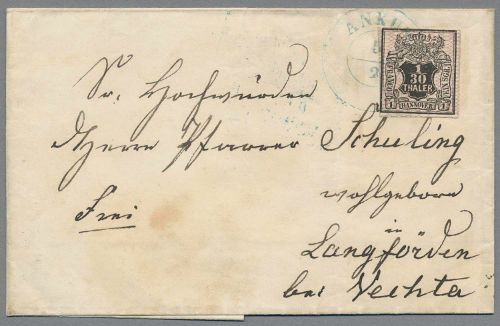 ANKUM
1
30
THALER
HANNOVER
Sr. Hochwürden
Herrn Pfarrer Schuling
wohlgeboren
Frei
in
Langförden
bei Vechta